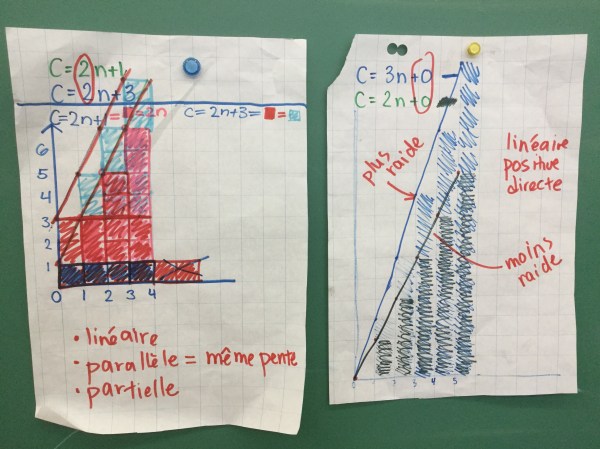 C = 2n+1
C = 2n+3
C=2n+
=2n
C = 2n+3=
=
6
5
4
3
2
1
0 1 2 3 4
• linéaire
• parallèle = même pente
• partielle
C = 3n+0
C = 2n+0
plus raide
linéaire
positive
directe
moins
raide